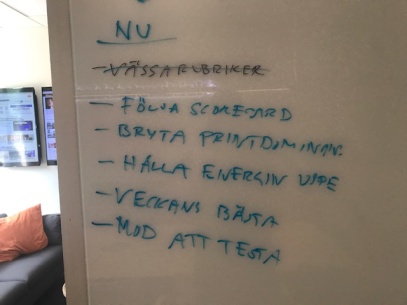 NU
- VÄSSA RUBRIKER
- FÖLJA SCORECARD
- BRYTA PRINTDOMINAN.
- HÅLLA ENERGIN UPPE
- VECKANS BÄSTA
- MOD ATT TESTA